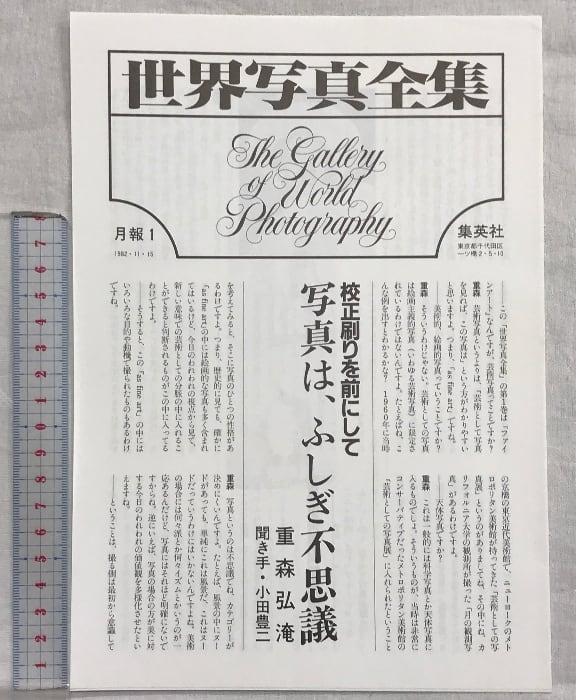 世界写真全集
The Gallery
of World
Photography
月報1
1982・11・15
集英社
東京都千代田区
一ツ橋2・5・10
――この『世界写真全集』の第1巻は『ファイ
ンアート』なんですが、芸術写真ってことですか?
重森 芸術写真というよりは、「芸術として写真
を見れば、この写真は」という方がわかりやすい
と思いますよ。つまり、「as fine art」ですね。
――美術的、絵画的写真っていうことですか?
重森 そういうわけじゃない。芸術としての写真
は絵画主義的写真(いわゆる芸術写真)に限定さ
れているわけではないんですよ。たとえばね、こ
んな例を出すとわかるかな? 1960年に当時
の京橋の東京近代美術館で、ニューヨークのメト
ロポリタン美術館が持ってきた「芸術としての写
真展」というのがありましてね、その中にね、カ
リフォルニア大学の観測所が撮った「月の観測写
真」があるわけですよ。
――天体写真ですか?
重森 これは一般的には科学写真とか天体写真に
入るものでしょ。そういうものが、当時は非常に
コンサーバティブだったメトロポリタン美術館の
「芸術としての写真展」に入れられたということ
校正刷りを前にして
写真は、ふしぎ不思議
重森弘淹
聞き手・小田豊二
を考えてみると、そこに写真のひとつの性格があ
るわけですよ。つまり、歴史的に見ても、確かに
「as fine art」の中には絵画的な写真も多く含まれ
てはいるけど、今日のわれわれの視点から見て、
新しい意味での芸術としての分脈の中に入れるこ
とができると判断されるものがこの中に入ってる
わけですよ。
――そうすると、この「as fine art」の中には
いろいろな目的や動機で撮られたものもあるわけ
ですね。
重森 写真というのは不思議でね、カテゴリーが
決めにくいんですよ。たとえば、風景の中にヌー
ドがあっても、単純にこれは風景だ、これはヌー
ドだっていうわけにはいかないんですよね。美術
の場合には何々派とか何々イズムとかいうのが一
応あるんだけど、写真にはそれほど明確にないで
すからね。逆にいえば、写真の場合の方が美に対
する今日のわれわれの価値観を多様化させたとい
えますね。
――ということは、撮る側は最初から意識して
1 2 3 4 5 6 7 8 9 10 1 2 3 4 5 6 7 8